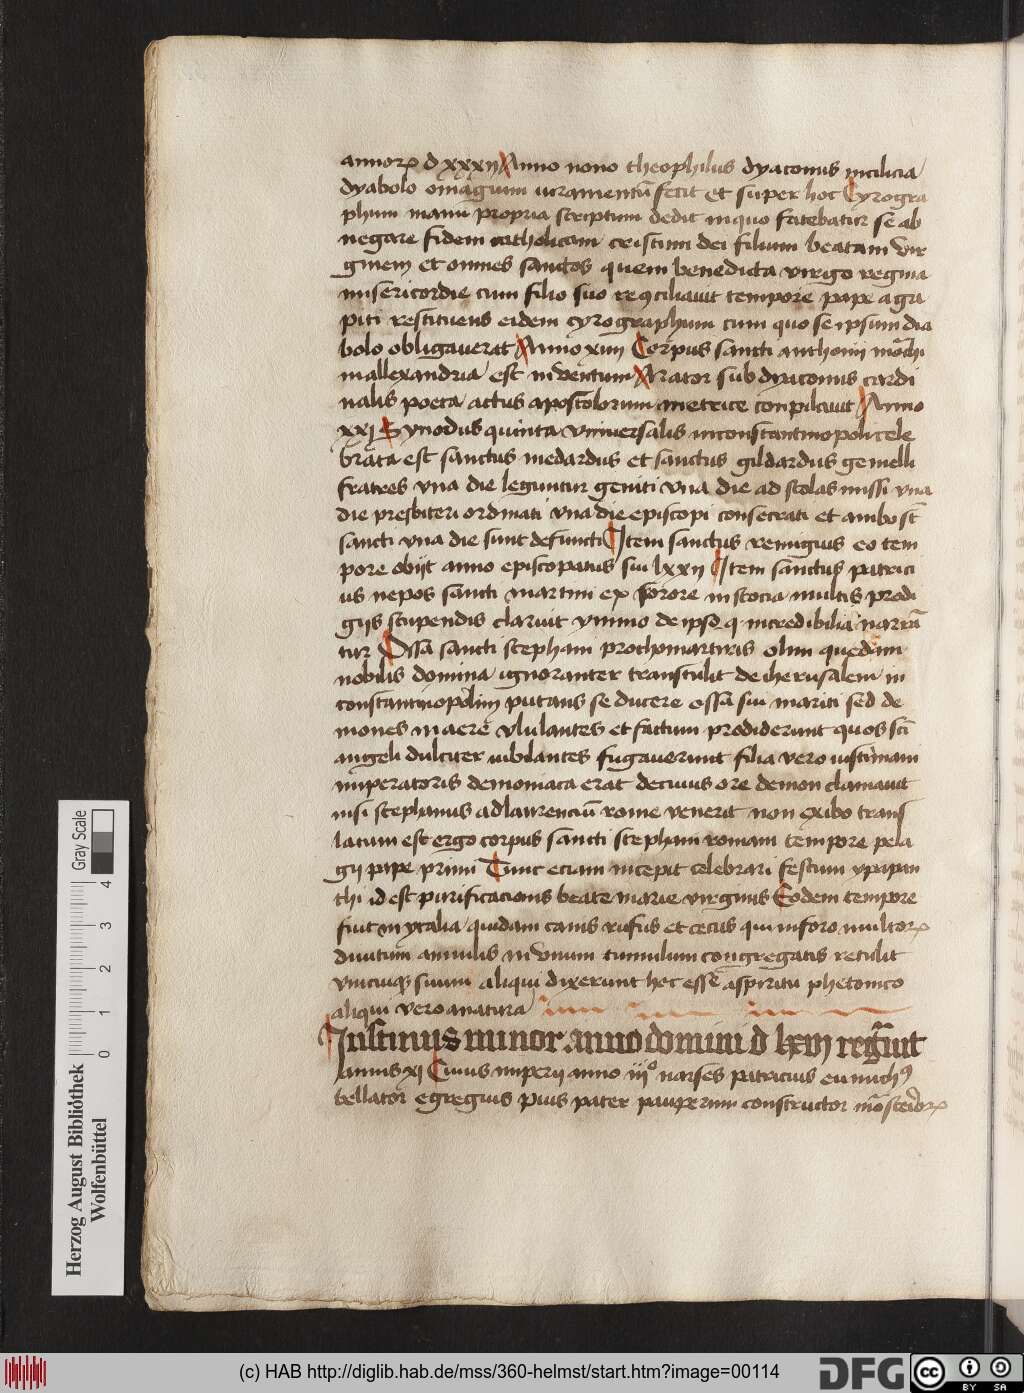 annorꝝ d xxxij Anno nono theophilus dyaconus incilicia
dyabolo omagium iuramentū fecit et super hoc Cyrogra
phum manu propria scriptum dedit inquo fatebatur se ab
negare fidem catholicam cristum dei filium beatam vir
ginem et omnes sanctos quem benedicta virgo regina
misericordie cum filio suo reꝯciliauit tempore pape aga
piti restituens eidem cyrographum cum quo se ipsum dia
bolo obligauerat Anno xiiij Corpus sancti anthonij mōchi
inallexandria est inventum Arator subdyaconus cardi
nalis poeta actus apostolorum metrice conpilauit Anno
xxj Synodus quinta vniuersalis inconstantinopoli cele
brata est sanctus medardus et sanctus gildardus gemelli
fratres vna die leguntur geniti vna die ad scolas missi vna
die presbiteri ordinati vna die episcopi consecrati et ambo st̄
sancti vna die sunt defuncti Item sanctus remigius eo tem
pore obijt anno episcopatus sui lxxij Item sanctus patrici
us nepos sancti martini ex sorore inscocia multis prodi
gijs stupendis claruit ymmo de ipso q incredibilia narrā
tur Ossa sancti stephani prothomartiris olim quedam
nobilis domina ignoranter transtulit de iherusalem in
constantinopolim putans se ducere ossa sui mariti sed de
mones in aere vlulantes et factum prodiderunt quos sc̄i
angeli dulciter iubilantes fugauerunt filia vero iustiniani
imperatoris demoniaca erat decuius ore demon clamauit
nisi stephanus adlaurenciū rome venerit non exibo trans
latum est ergo corpus sancti stephani romam tempore pela
gij pape primi Tunc eciam incepit celebrari festum ypapan
thi id est purificacionis beate marie virginis Eodem tempore
fuit in ytalia quidam canis rufus et cecus qui inforo multorꝝ
diuitum annulis in vnum tumulum congregatis retulit
vnicuiqꝫ suum aliqui dixerunt hoc esse aspiritu phetonico
aliqui vero anatura
Iustinus minor anno domini d lxvj regᷓuit
annis xj Cuius imperij anno iijᵒ narses patricius eunuchꝰ
bellator egregius pius pater pauperum constructor mōasteriorꝝ
Gray Scale
Herzog August Bibliothek
Wolfenbüttel
0 1 2 3 4
(c) HAB http://diglib.hab.de/mss/360-helmst/start.htm?image=00114
DFG
cc BY SA